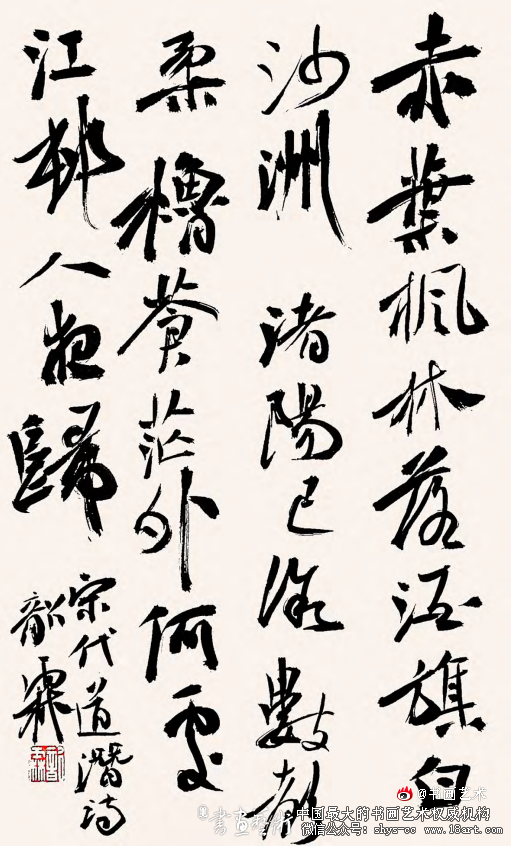 赤葉楓林落酒旗白
沙洲渚陽已微數聲
柔櫓蒼茫外何處
江邨人夜歸
宋代道潛詩
韶霖
@书画艺术
書畫藝術
中国最大的书画艺术权威机构
微信公众号: shys-cc www.18art.com